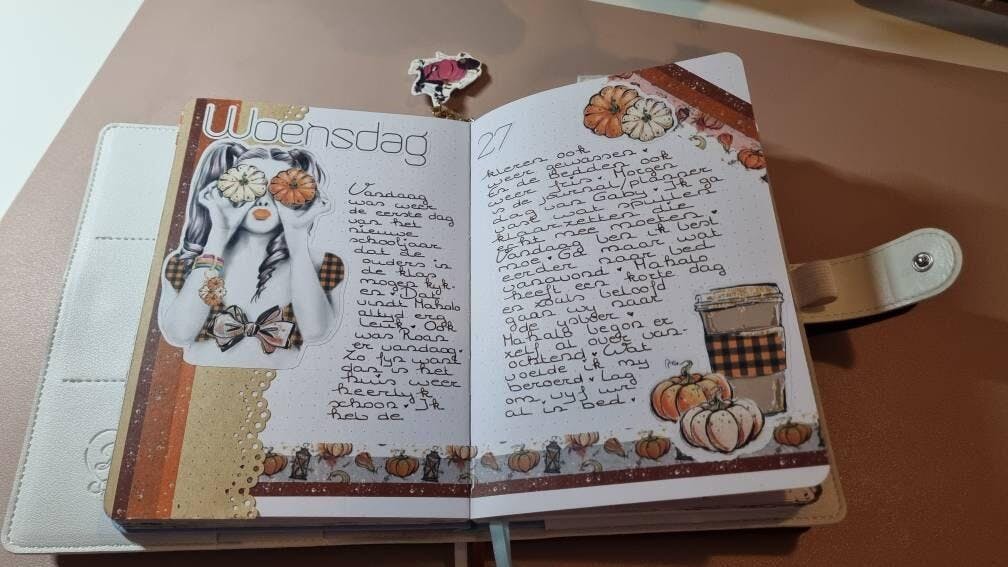 Woensdag
Vandaag
was weer
de eerste dag
van het
nieuwe
schooljaar
dat de
ouders in
de klas
mogen kijk
en. Dat
vindt Mahalo
altyd erg
leuk. Ook
was Koan
er vandaag.
Zo fyn want
dan is het
huis weer
heerlyk
schoon. Ik
heb de
27
kleren ook
weer gewassen.
En de bedden ook
weer fris. Morgen
is de journal/planner
dag van Gaby. Ik ga
vast wat spullen
klaarzetten die
echt mee moeten.
Vandaag ben ik best
moe. Ga maar wat
eerder naar bed
vanavond. Mahalo
heeft een korte dag
en zoals beloofd
gaan wy naar
de vyver.
Mahalo begon er
zelf al over van-
ochtend. Wat
voelde ik my
beroerd. Lag
om vyf uur
al in bed.